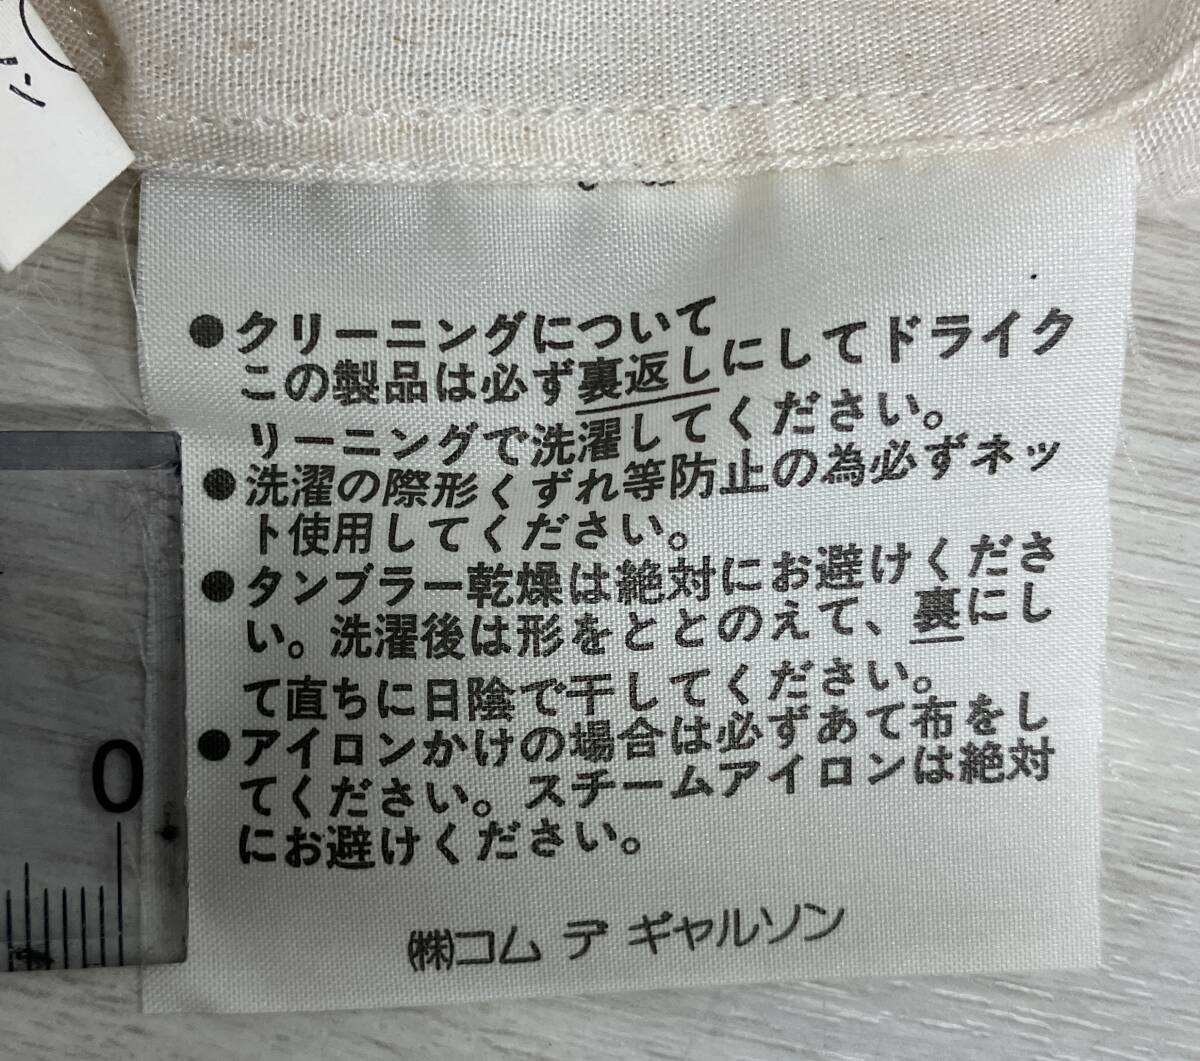 ●クリーニングについて
この製品は必ず裏返しにしてドライク
リーニングで洗濯してください。
●洗濯の際形くずれ等防止の為必ずネッ
ト使用してください。
●タンブラー乾燥は絶対にお避けくださ
い。洗濯後は形をととのえて、裏にし
て直ちに日陰で干してください。
●アイロンかけの場合は必ずあて布をし
てください。スチームアイロンは絶対
にお避けください。
㈱コム デ ギャルソン
0